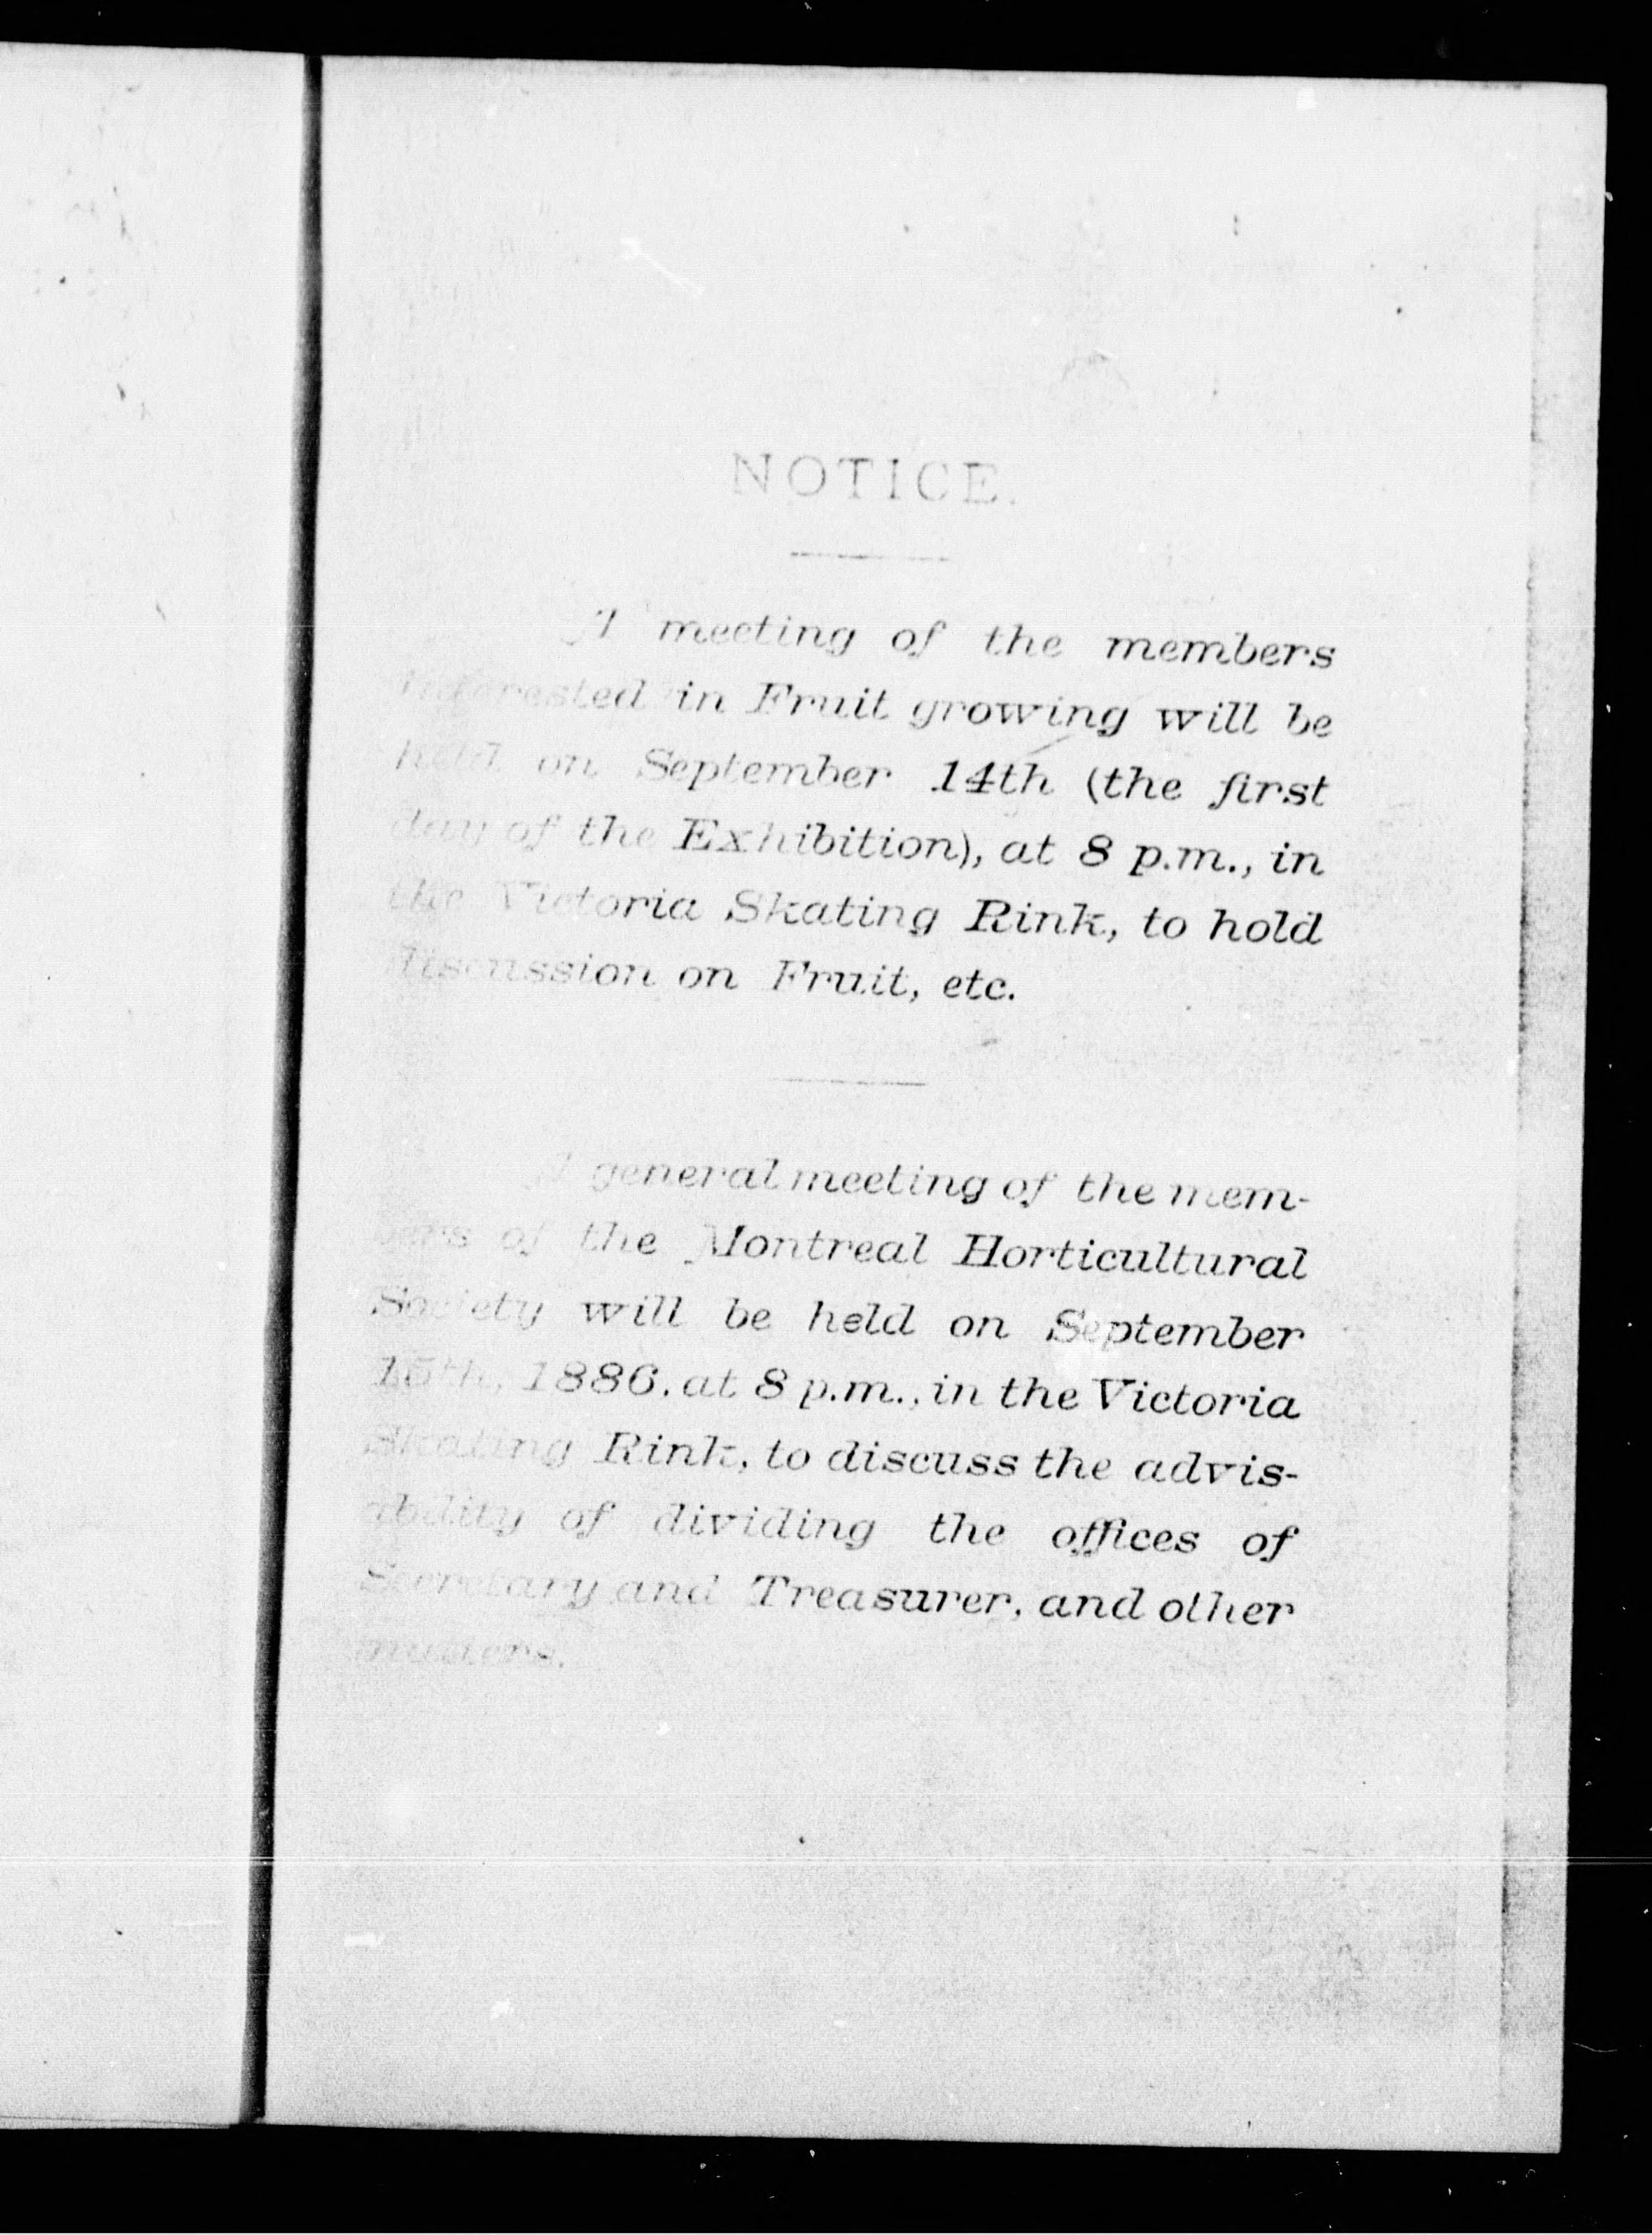 NOTICE.
A meeting of the members
interested in Fruit growing will be
held on September 14th (the first
day of the Exhibition), at 8 p.m., in
the Victoria Skating Rink, to hold
discussion on Fruit, etc.
A general meeting of the mem-
bers of the Montreal Horticultural
Society will be held on September
15th, 1886, at 8 p.m., in the Victoria
Skating Rink, to discuss the advis-
ability of dividing the offices of
Secretary and Treasurer, and other
matters.